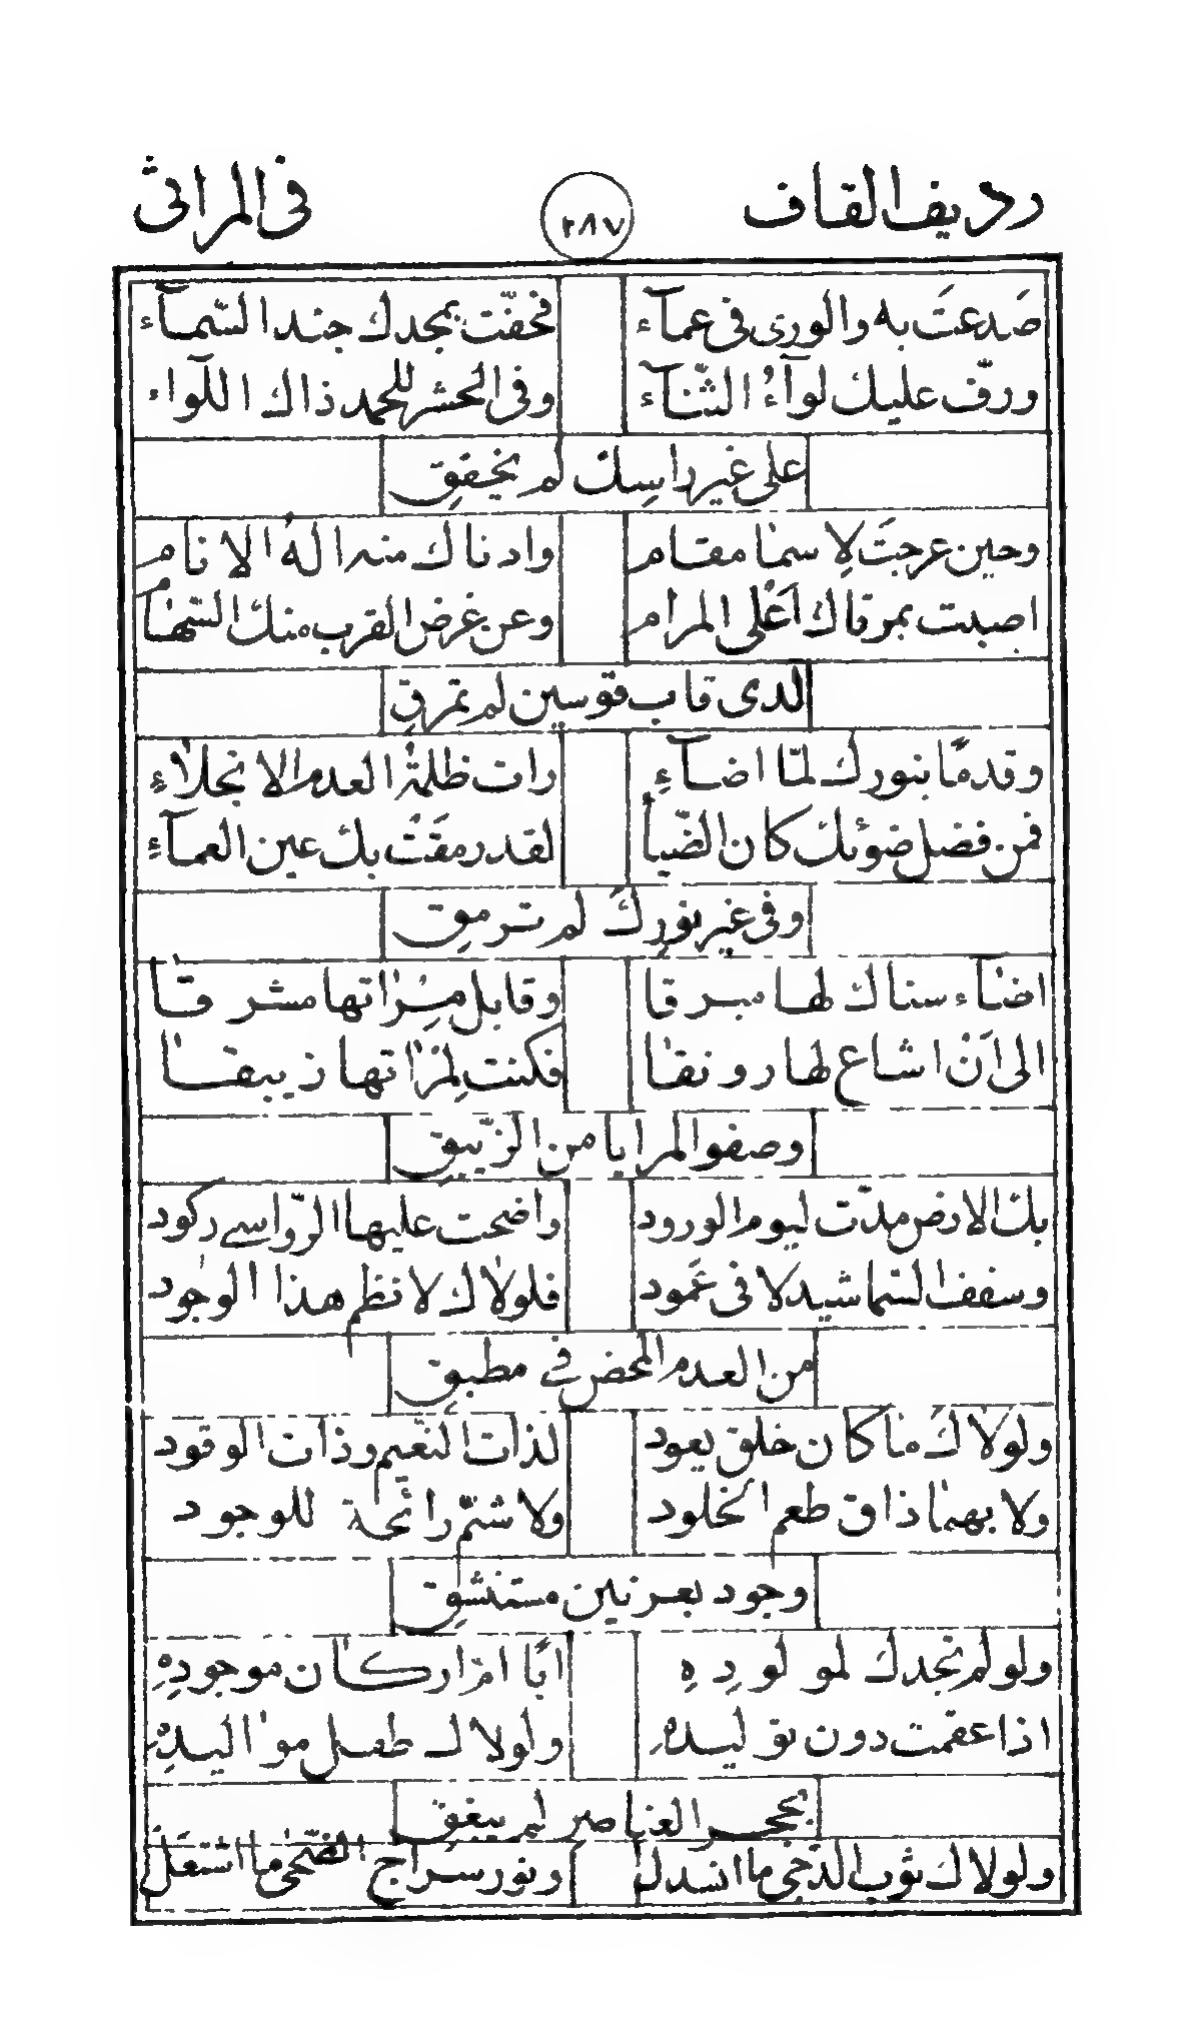 رديف القاف ٢٨٧ فى المراثى
صَدعتَ به والورى فى عمآء فحفّت بمجدك جند السّمآء
ورفّ عليك لوآءُ الثّنآء وفى الحشر للحمد ذاك اللّواء
على غير راسك لم يخفق
وحين عرجتَ لاسما مقام وادناك منه اله الانام
اصبت بمرقاك اَعْلى المرام وعن غرض القرب منك السّهام
لدى قاب قوسين لم تمرق
وقدمًا بنورك لمّا اضآءِ رات ظلمةُ العدم الانجلاءِ
فمن فضل ضوئك كان الضّيأ لقد رمقَتْ بك عين العمآءِ
وفى غير نورك لم ترمق
اضآء سناك لها مبرقا وقابل مِرْاتها مشرقا
الى اَنْ اشاع لها رونقا فكنت لِمرْاتها زيبقا
وصفو المرايا من الزّيبق
بك الارض مدّت ليوم الورود واضحت عليها الرّواسے ركود
وسقف السّما شيد لا فى عَمود فلولاك لا نظم هذا الوجود
من العدم المحض فے مطبق
ولولاك ما كان خلق يعود لذات النّعيم وذات الوقود
ولا بهما ذاق طعم الخلود ولا شمّ رائحة للوجود
وجود بعرنين مستنشق
ولو لم نجدك لمولودهِ ابًا امّ اركان موجودهِ
اذا عقمت دون توليدهِ ولولاك طفل مواليدهِ
بحجر العناصر لم يبغق
ولولاك ثوب الدّجى ما انسدل ونور سراج الضّحى ما اشتعل